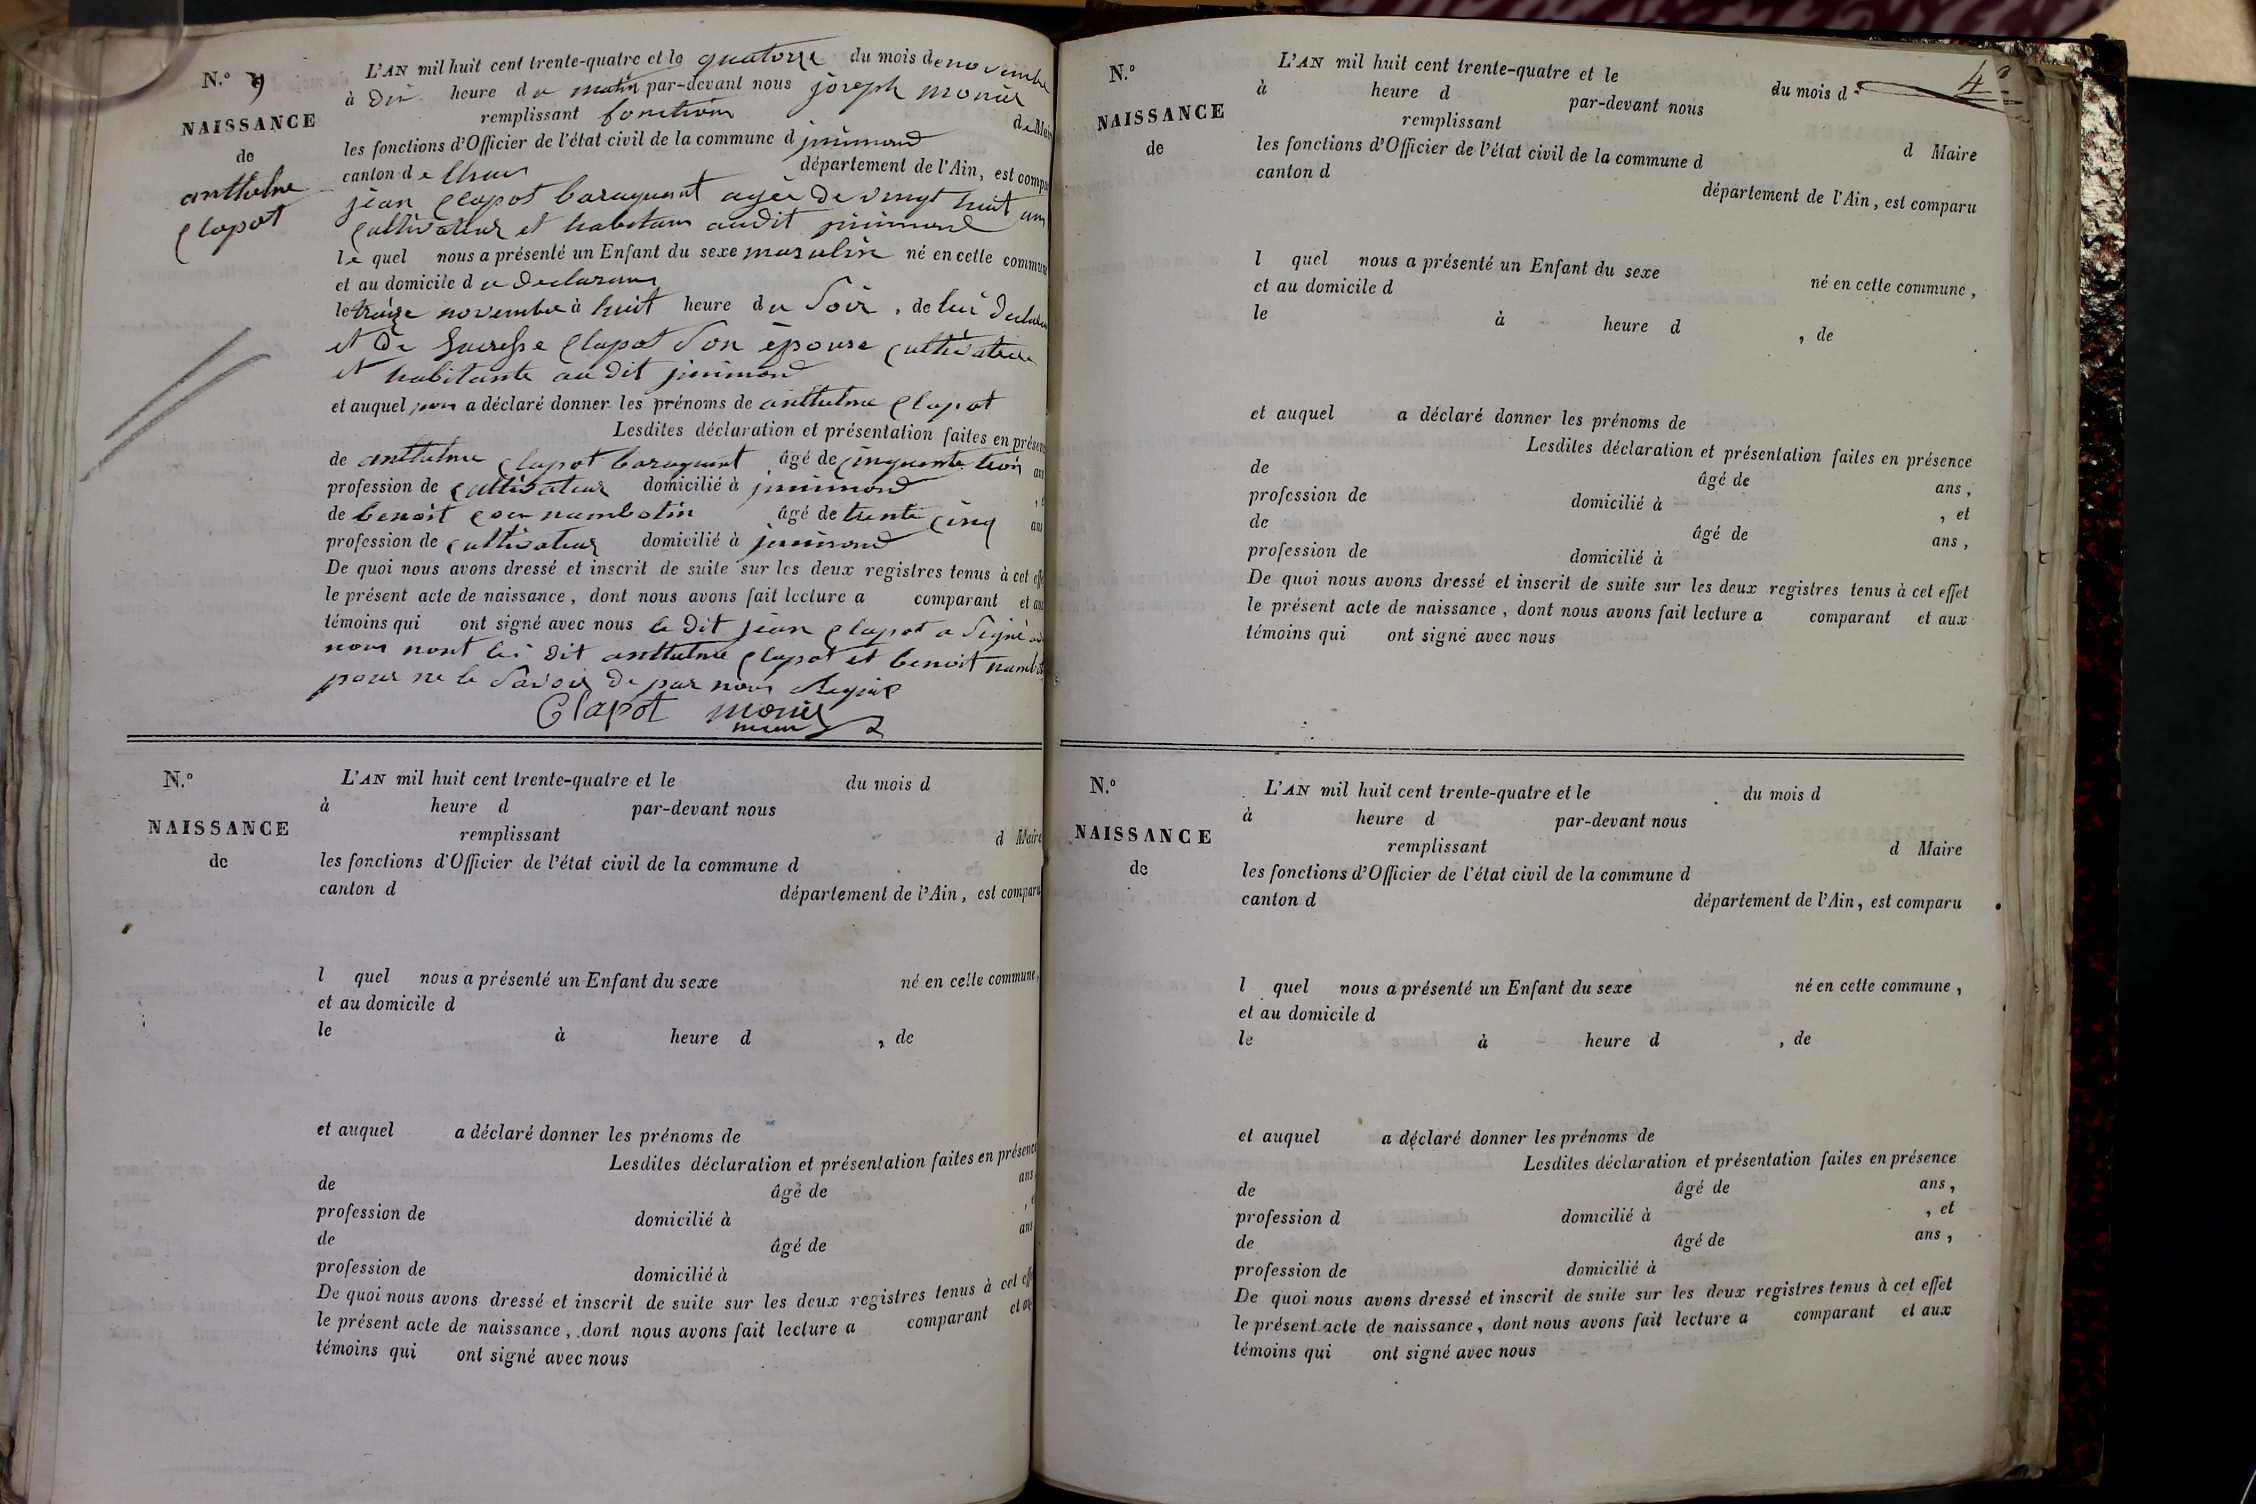 N.° 9
NAISSANCE
de
anthelme
Clapot
L'AN mil huit cent trente-quatre et le quatorze du mois de novembre
à Dix heure du matin par-devant nous joseph monier
remplissant fonction de Maire
les fonctions d'Officier de l'état civil de la commune d
canton de département de l'Ain, est comparu
jean Clapot baraquent agée de vingt huit ans
Cultivateur et habitans audit
le quel nous a présenté un Enfant du sexe masculin né en cette commune
et au domicile du Declarans
le treize novembre à huit heure du Soir, de lui Declarans
et De Clapot Son épouse Cultivatrice
et habitante au dit
et auquel nous a déclaré donner les prénoms de anthelme Clapot
Lesdites déclaration et présentation faites en présence
de anthelme Clapot baraquent âgé de Cinquante trois ans
profession de Cultivateur domicilié à , et
de benoit nambotin âgé de trente Cinq ans
profession de Cultivateur domicilié à
De quoi nous avons dressé et inscrit de suite sur les deux registres tenus à cet effet
le présent acte de naissance, dont nous avons fait lecture a comparant et aux
témoins qui ont signé avec nous le dit jean Clapot a Signé
nous nont les dit anthelme Clapot et benoit nambotin
pour ne le Savoir De par nous Requis
Clapot monier
maire
N.°
NAISSANCE
de
L'AN mil huit cent trente-quatre et le du mois d
à heure d par-devant nous
remplissant d Maire
les fonctions d'Officier de l'état civil de la commune d
canton d département de l'Ain, est comparu
l quel nous a présenté un Enfant du sexe né en cette commune,
et au domicile d
le à heure d , de
et auquel a déclaré donner les prénoms de
Lesdites déclaration et présentation faites en présence
de âgé de ans
profession de domicilié à , et
de âgé de ans
profession de domicilié à
De quoi nous avons dressé et inscrit de suite sur les deux registres tenus à cet effet
le présent acte de naissance, dont nous avons fait lecture a comparant et aux
témoins qui ont signé avec nous
4
N.°
NAISSANCE
de
L'AN mil huit cent trente-quatre et le du mois d
à heure d par-devant nous
remplissant d Maire
les fonctions d'Officier de l'état civil de la commune d
canton d département de l'Ain, est comparu
l quel nous a présenté un Enfant du sexe né en cette commune,
et au domicile d
le à heure d , de
et auquel a déclaré donner les prénoms de
Lesdites déclaration et présentation faites en présence
de âgé de ans,
profession de domicilié à , et
de âgé de ans,
profession de domicilié à
De quoi nous avons dressé et inscrit de suite sur les deux registres tenus à cet effet
le présent acte de naissance, dont nous avons fait lecture a comparant et aux
témoins qui ont signé avec nous
N.°
NAISSANCE
de
L'AN mil huit cent trente-quatre et le du mois d
à heure d par-devant nous
remplissant d Maire
les fonctions d'Officier de l'état civil de la commune d
canton d département de l'Ain, est comparu
l quel nous a présenté un Enfant du sexe né en cette commune,
et au domicile d
le à heure d , de
et auquel a déclaré donner les prénoms de
Lesdites déclaration et présentation faites en présence
de âgé de ans,
profession d domicilié à , et
de âgé de ans,
profession de domicilié à
De quoi nous avons dressé et inscrit de suite sur les deux registres tenus à cet effet
le présent acte de naissance, dont nous avons fait lecture a comparant et aux
témoins qui ont signé avec nous